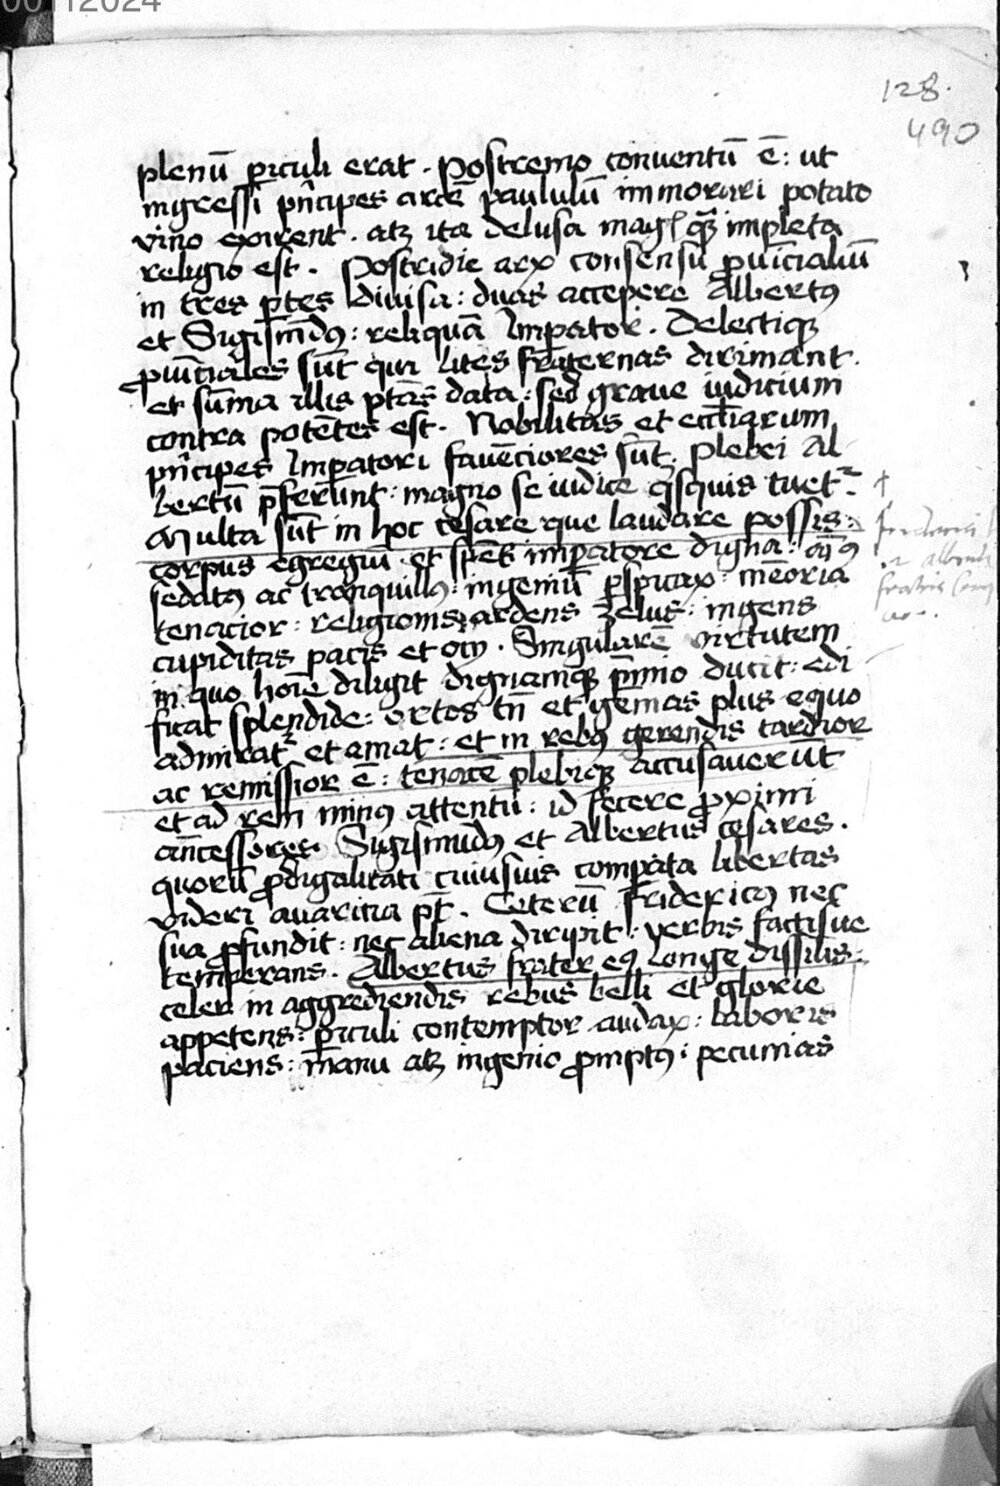 00112024
128.
490
plenū ꝑiculi erat . Postremo conuentū ē : ut
ingressi pn̄cipes arcē paululū immorari potato
vino exirent . atꝫ ita delusa maḡ qꝫ impleta
religio est . Postridie arx consensu ꝓuīcialiū
in tres ꝑtes diuisa : duas accepere Albertꝰ
et Sigismūdꝰ : reliquā Imꝑator . Delectiqꝫ
ꝓuīciales sūt qui lites fr̄aternas dirimant .
et sūma illis ptās data : sed graue iudicium
contra potētes est . Nobilitas et eccl̄iarum
pn̄cipes Imꝑatori fauēciores sūt . plebei Al
bertū p̄ferunt : magno se iudice q̄squis tuet᷑
Multa sūt in hoc cesare que laudare possis :
corpus egregiū et spēs imꝑatore digna : aīꝰ
sedatꝰ ac tranquillꝰ : ingeniū ꝑspicax : mēoria
tenacior : religionis ardens zelus : ingens
cupiditas pacis et ocij . Singularē virtutem
in quo hoīe diligit dignamqꝫ p̄mio ducit : edi
ficat splendide : ortos tn̄ et gēmas plus equo
admirat᷑ et amat : et in rebꝰ gerendis tardior
ac remissior ē : tenacē plebiqꝫ accusauerūt
et ad rem minꝰ attentū : id fecere ꝓximi
an̄cessores Sigismūdꝰ et Albertus cesares .
quorū ꝓdigalitati cuiusuis comꝑata libertas
videri auaritia pt̄ . Ceterū Fridericꝰ nec
sua ꝓfundit : nec aliena diripit : verbis factisue
temperans . Albertus frater eiꝰ longe dissilis :
celer in aggrediendis rebus belli et glorie
appetens : ꝑiculi contemptor audax : laboris
paciens : manu atꝫ ingenio ꝓmptꝰ : pecunias